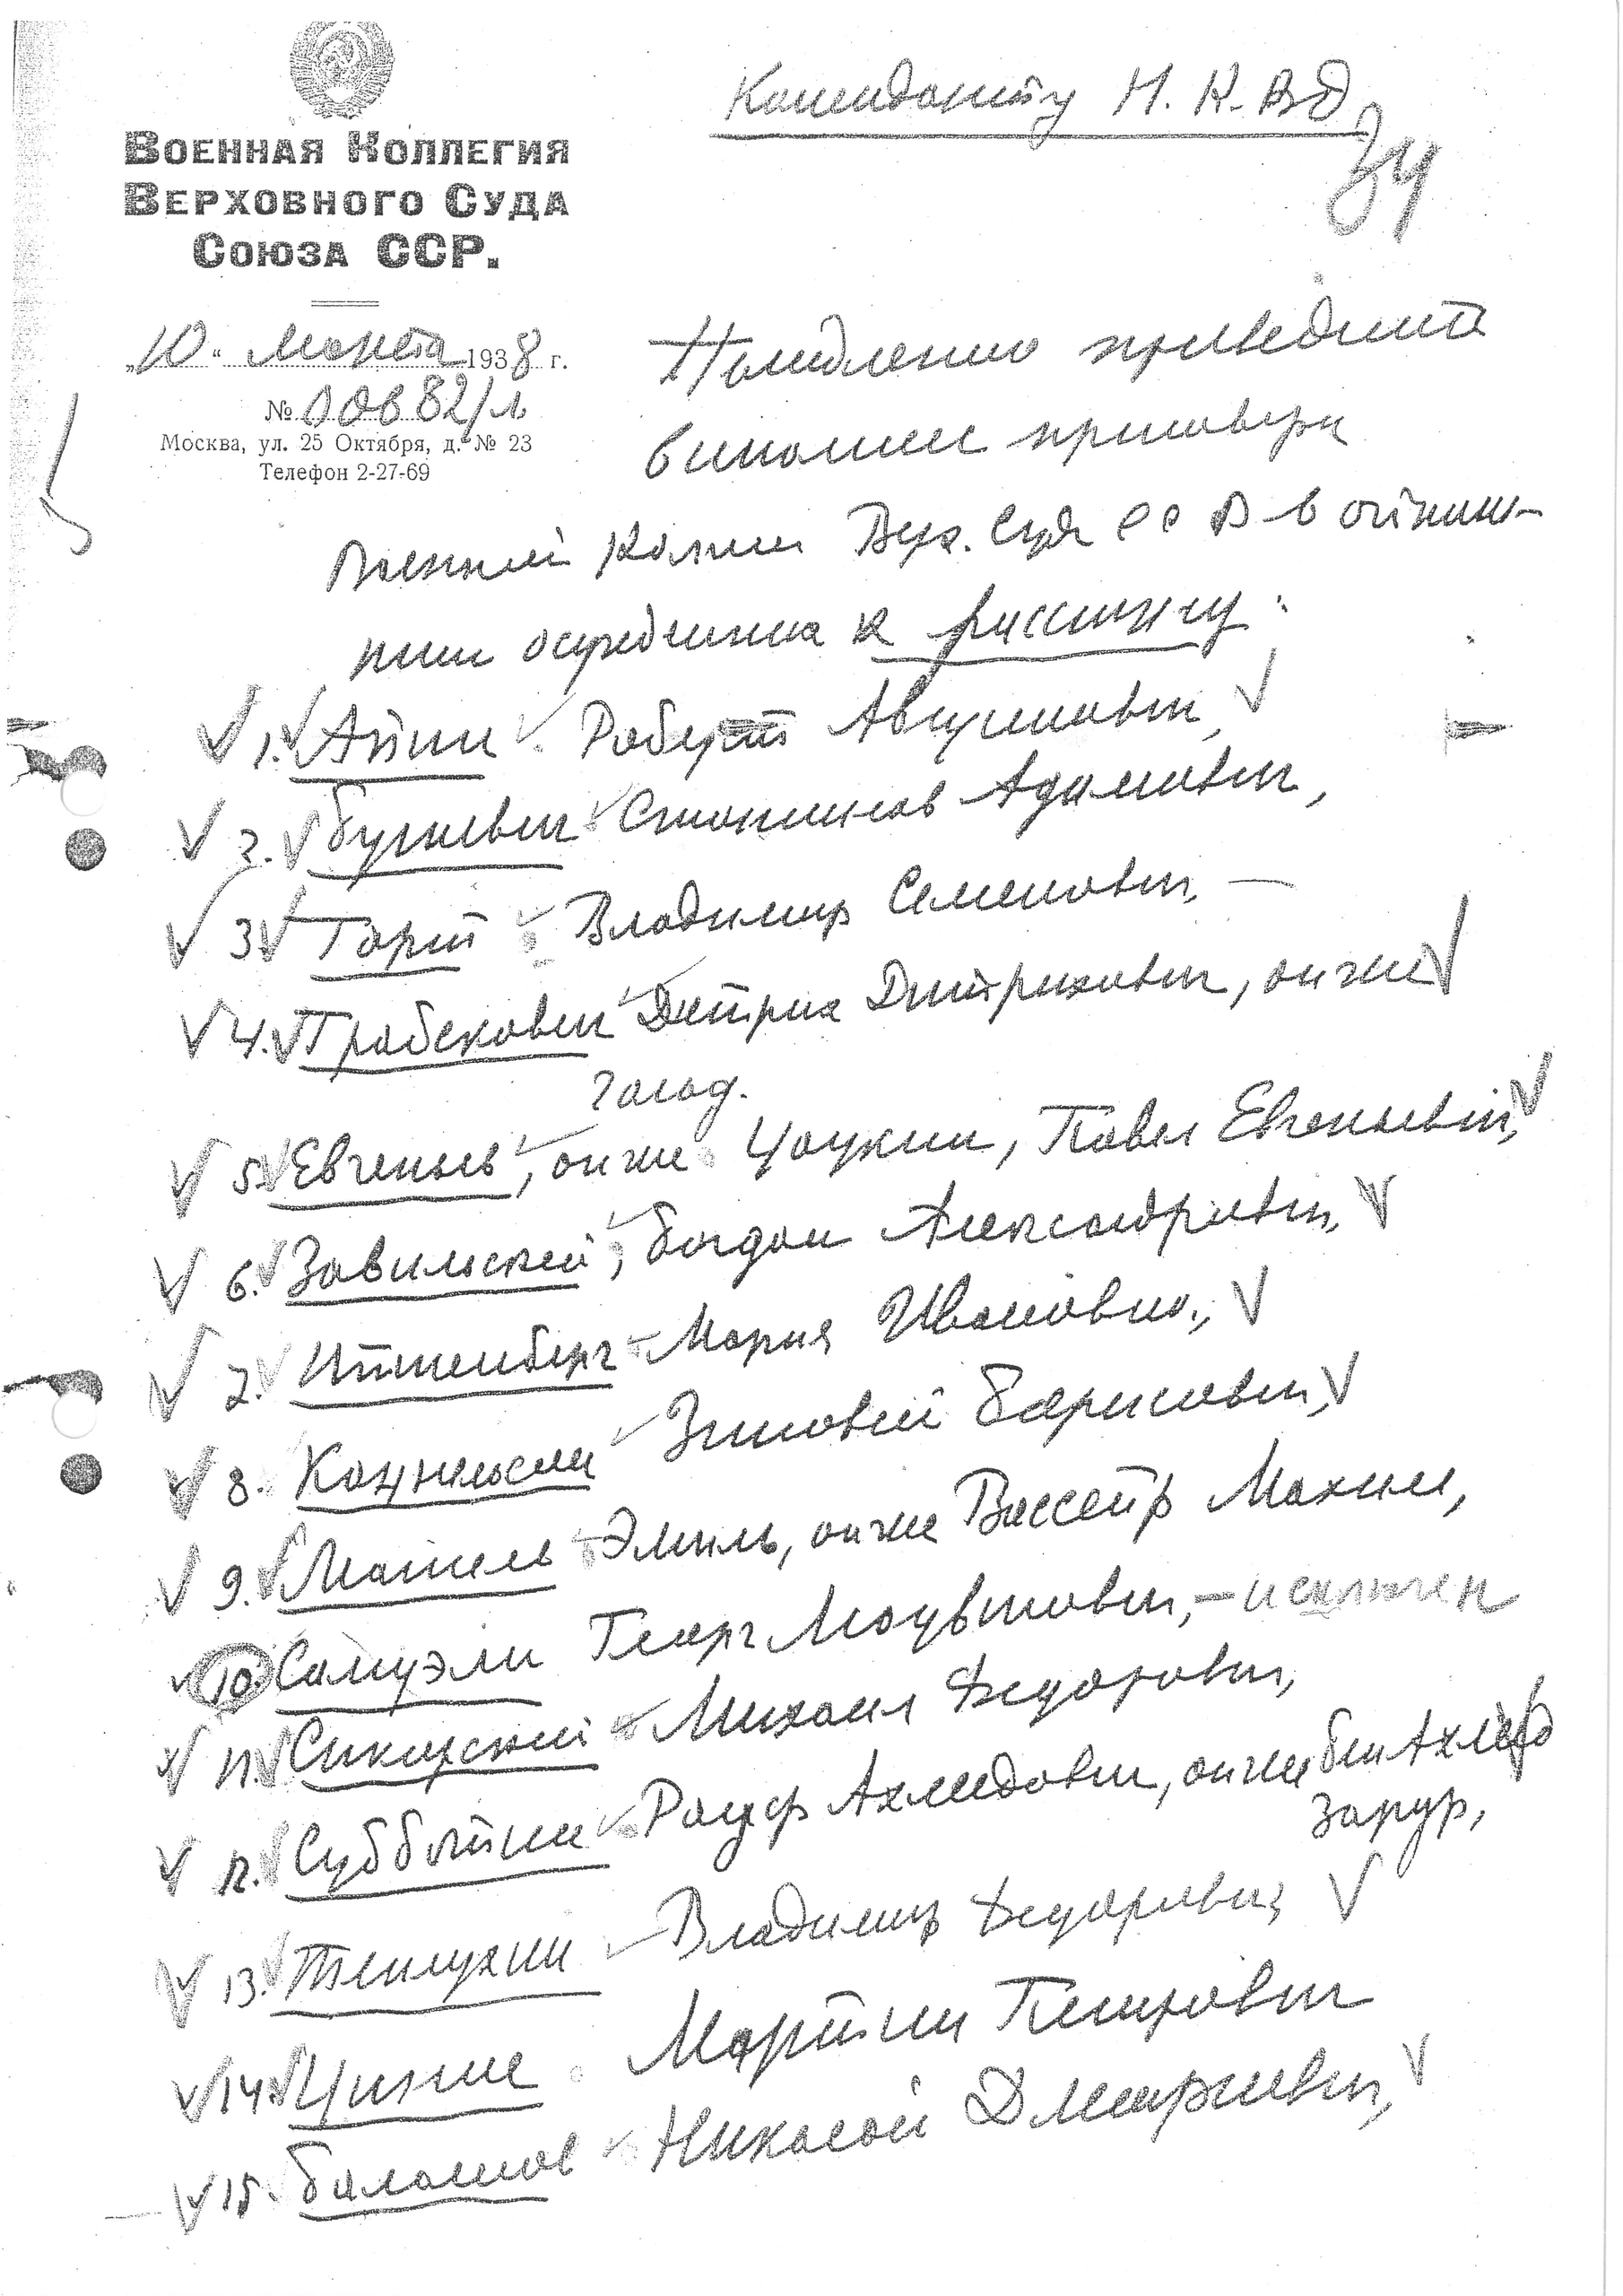 Военная Коллегия
Верховного Суда
Союза ССР.
„10“ марта 1938 г.
№ 00682/л
Москва, ул. 25 Октября, д. № 23
Телефон 2-27-69
Коменданту Н. К. ВД
34
Немедленно приведите
в исполнение приговора
Военной Коллегии Верх. Суда СССР в отноше-
нии осужденных к расстрелу:
1. Апин Роберт Августович,
2. Буткевич Станислав Адамович,
3. Горт Владимир Семенович, —
4. Грабекович Дитрих Дитрихович, он же
Галад.
5. Евгеньев, он же Цаукин, Павел Евгеньевич,
6. Завильский, Богдан Александрович,
7. Иттенберг Мария Ивановна,
8. Кацнельсон Зиновий Борисович,
9. Матель Эмиль, он же Вассейр Махим,
10. Самуэли Георг Моувшович, — исключен
11. Сикорский Михаил Федорович,
12. Субботин Рауф Ахмедович, он же Бен Ахмед
Зарур,
13. Теплухин Владимир Федорович,
14. Цинже Мартин Петрович
15. Балашов Николай Дмитриевич,